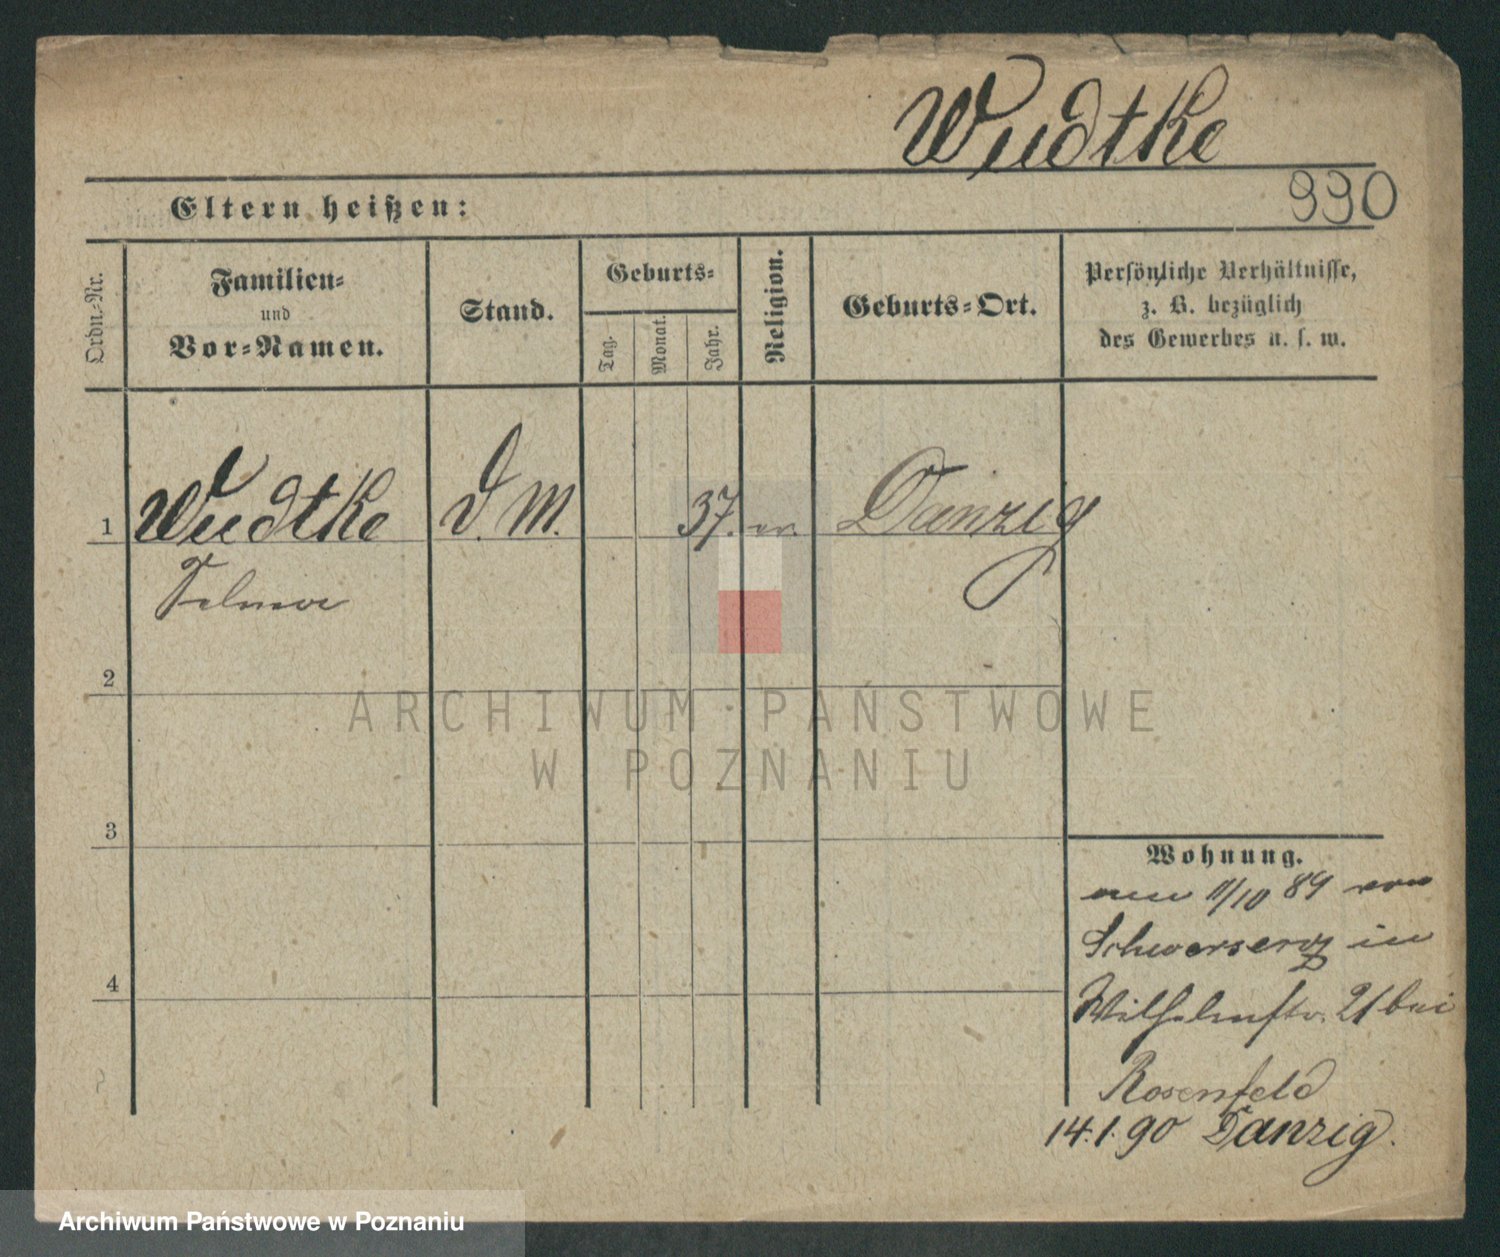 Wudtke
990
Eltern heißen:
Ordn.-Nr.
Familien-
und
Vor-Namen.
Stand.
Geburts-
Tag.
Monat.
Jahr.
Religion.
Geburts-Ort.
Persönliche Verhältnisse,
z. B. bezüglich
des Gewerbes u. s. w.
1 Wudtke D. M. 37. ev. Danzig
2
3
4
Wohnung.
11/10 89 von
Schwersenz in
Wilhelmstr. 21 bei
Rosenfeld
14.1.90 Danzig.
ARCHIWUM PAŃSTWOWE
W POZNANIU
Archiwum Państwowe w Poznaniu